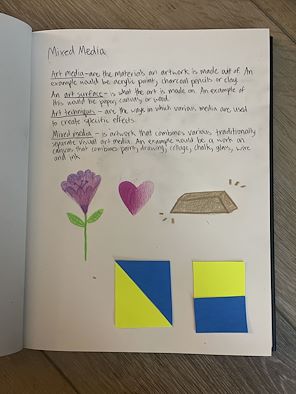 Mixed Media
Art media - are the materials an artwork is made out of. An
example would be acrylic paint, charcoal pencils or clay.
An art surface - is what the art is made on. An example of
this would be paper, canvas or wood.
Art techniques - are the ways in which various media are used
to create specific effects.
Mixed media - is artwork that combines various traditionally
separate visual art media. An example would be a work on
canvas that combines paint, drawing, collage, chalk, glass, wire
and ink.